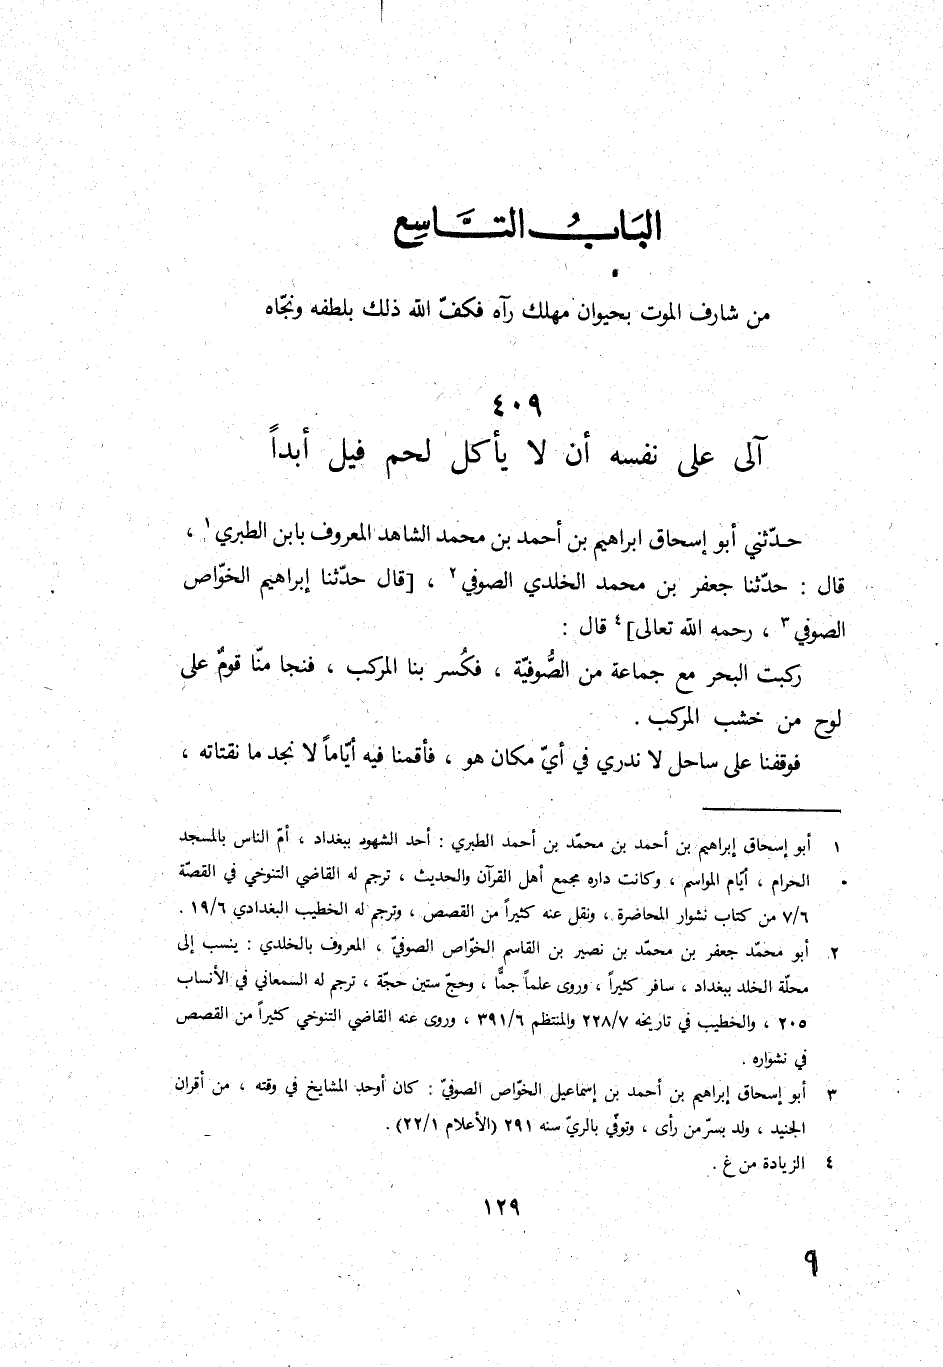 البَابُ التَّاسِع
من شارف الموت بحيوان مهلك رآه فكفّ الله ذلك بلطفه ونجّاه
٤٠٩
آلى على نفسه أن لا يأكل لحم فيل أبداً
حدّثني أبو إسحاق ابراهيم بن أحمد بن محمد الشاهد المعروف بابن الطبري ١ ،
قال : حدّثنا جعفر بن محمد الخلدي الصوفي ٢ ، [قال حدّثنا إبراهيم الخوّاص
الصوفي ٣ ، رحمه الله تعالى] ٤ قال :
ركبت البحر مع جماعة من الصُّوفيّة ، فكُسر بنا المركب ، فنجا منّا قومٌ على
لوح من خشب المركب .
فوقفنا على ساحل لا ندري في أيّ مكان هو ، فأقمنا فيه أيّاماً لا نجد ما نقتاته ،
١ أبو إسحاق إبراهيم بن أحمد بن محمّد بن أحمد الطبري : أحد الشهود ببغداد ، أمّ الناس بالمسجد
الحرام ، أيّام المواسم ، وكانت داره مجمع أهل القرآن والحديث ، ترجم له القاضي التنوخي في القصّة
٧/٦ من كتاب نشوار المحاضرة ، ونقل عنه كثيراً من القصص ، وترجم له الخطيب البغدادي ١٩/٦ .
٢ أبو محمّد جعفر بن محمّد بن نصير بن القاسم الخوّاص الصوفيّ ، المعروف بالخلدي : ينسب إلى
محلّة الخلد ببغداد ، سافر كثيراً ، وروى علماً جمًّا ، وحجّ ستين حجّة ، ترجم له السمعاني في الأنساب
٢٠٥ ، والخطيب في تاريخه ٢٢٨/٧ والمنتظم ٣٩١/٦ ، وروى عنه القاضي التنوخي كثيراً من القصص
في نشواره .
٣ أبو إسحاق إبراهيم بن أحمد بن إسماعيل الخوّاص الصوفيّ : كان أوحد المشايخ في وقته ، من أقران
الجنيد ، ولد بسرّ من رأى ، وتوفّي بالريّ سنه ٢٩١ (الأعلام ٢٢/١) .
٤ الزيادة من غ .
١٢٩
٩